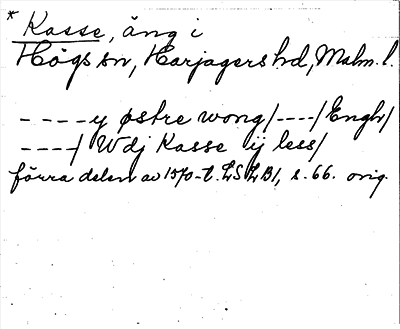 * Kasse, äng i
Högs sn, Harjagers hd, Malm. l.
----y østre wong/----/Engh/
----/ Wdj Kasse ij less/
förra delen av 1570-t. LSLB1, s. 66. orig.